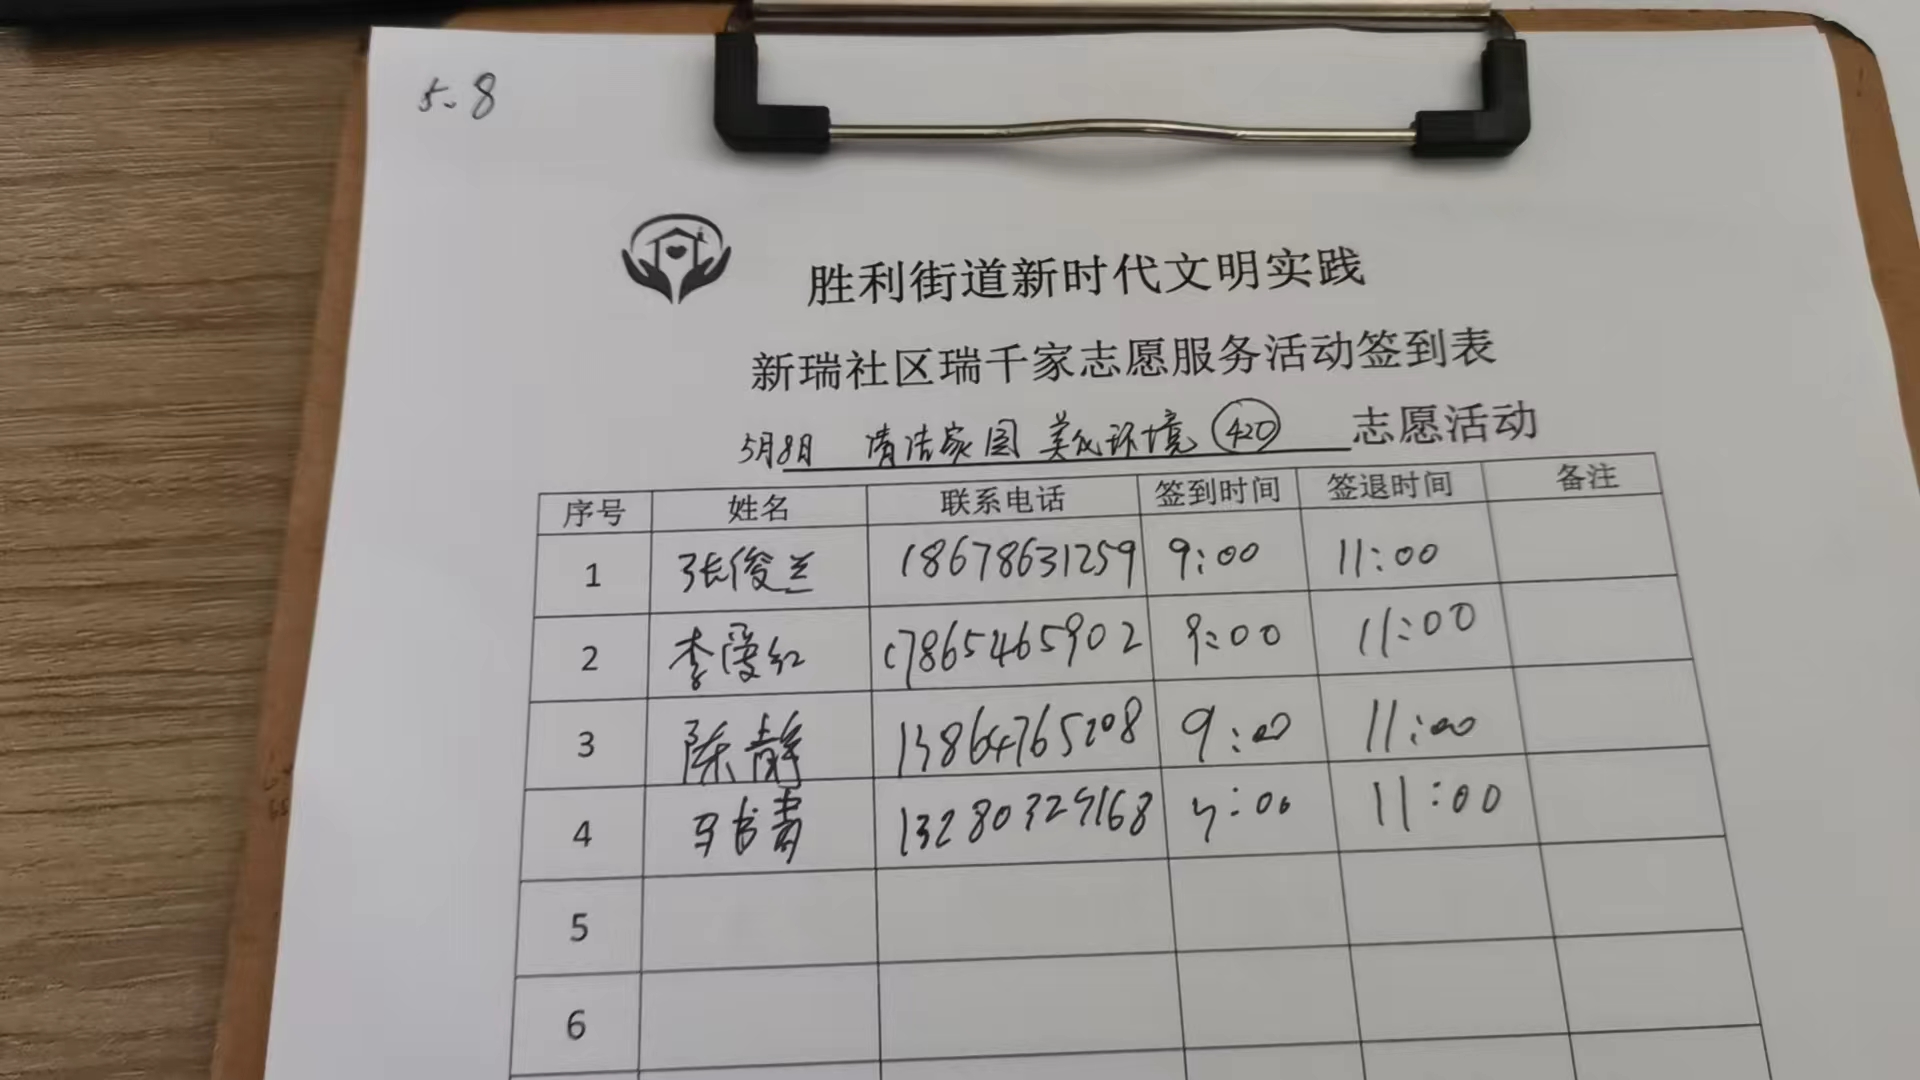 5.8
胜利街道新时代文明实践
新瑞社区瑞千家志愿服务活动签到表
5月8日 清洁家园 美化环境 420 志愿活动
序号 姓名 联系电话 签到时间 签退时间 备注
1 张俊兰 18678631259 9:00 11:00
2 李爱红 17865465902 9:00 11:00
3 陈静 13864765208 9:00 11:00
4 13280329168 9:00 11:00
5
6